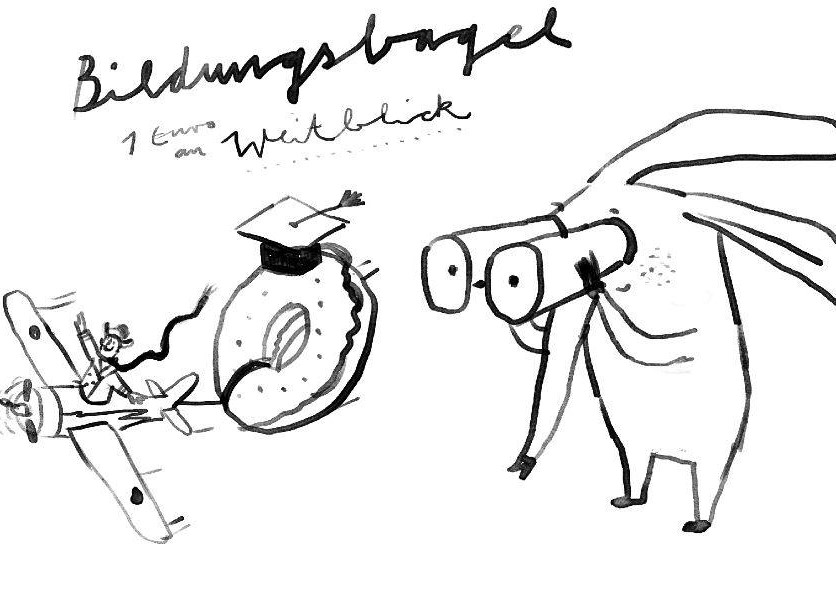 Bildungsbagel
1 Euro an Weitblick